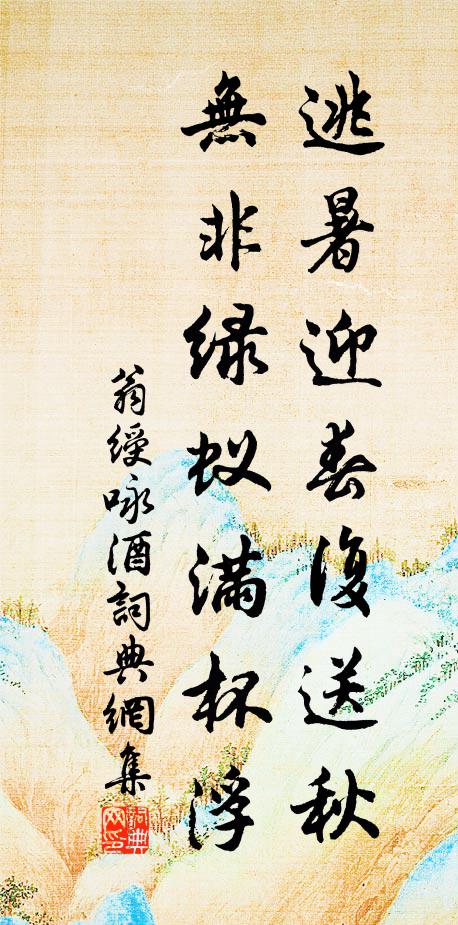 逃暑迎春復送秋
無非綠蚁滿杯浮
翁綬咏酒詞典網集
詞典